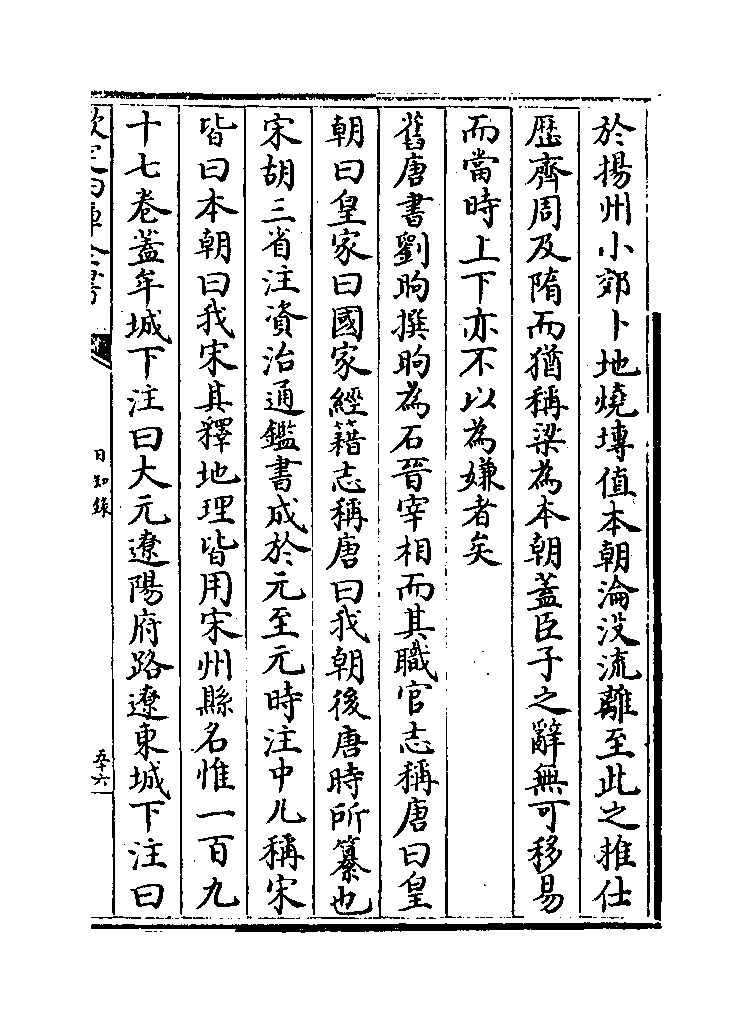 於揚州小郊卜地燒塼值本朝淪没流離至此之推仕
歴齊周及隋而猶稱梁為本朝蓋臣子之辭無可移易
而當時上下亦不以為嫌者矣
舊唐書劉昫撰昫為石晉宰相而其職官志稱唐曰皇
朝曰皇家曰國家經籍志稱唐曰我朝後唐時所纂也
宋胡三省注資治通鑑書成於元至元時注中凡稱宋
皆曰本朝曰我宋其釋地理皆用宋州縣名惟一百九
十七卷蓋牟城下注曰大元遼陽府路遼東城下注曰
欽定四庫全書
日知録
五十六